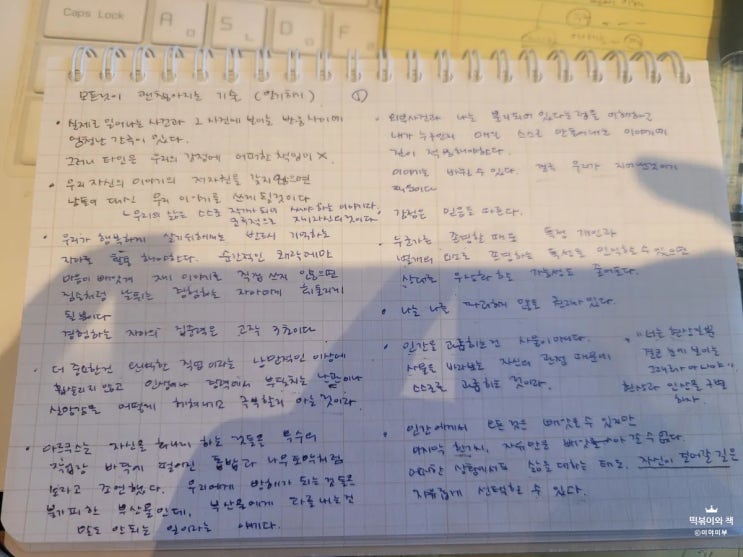 Caps Lock
A
S
D
F
모든것이 괜찮아지는 기술 (읽기하기) ①
• 실제로 일어나는 사건과 그 사건에 보이는 반응 사이에
엄청난 간극이 있다.
그러니 타인은 우리의 감정에 어떠한 책임이 X.
• 우리 자신의 이야기의 저자권을 갖지 않으면
남들이 대신 우리 이야기를 쓰게 될것이다
우리의 삶은 스스로 작가가 되어 써야하는 이야기다.
궁극적으로 자신의것이다
• 우리가 행복하게 살기위해서는 반드시 기억하는
자아를 활용 해야한다. 순간적인 쾌락에만
마음이 빼앗겨 이야기를 직접 쓰지 않으면
짐승처럼 날뛰는 경험하는 자아에게 휘둘리게
된다
경험하는 자아의 집중력은 고작 3초이다
• 더 중요한건 완벽한 직업이라는 낭만적인 이상에
휩쓸리지 않고 인생이나 경력에서 부딪치는 나쁨이나
실망감을 어떻게 헤쳐나가고 극복할지 아는 것이다.
• 아우렐리우스는 자신을 화나게 하는 것들을 목수의
작업장 바닥에 떨어진 톱밥과 나무토막처럼
보라고 조언했다. 우리에게 방해가 되는 것들은
불가피한 부산물인데, 부산물에게 화를 내는건
말도 안되는 일이라는 얘기다.
• 외부사건과 나는 분리되어 있다는 점을 이해하고
내가 누구인지 매일 스스로 만들어내는 이야기에
이 적용해야한다.
이야기를 바꿀 수 있다. 결국 우리가 지어낸것이기
때문이다
• 감정은 믿음을 따른다.
• 누군가를 존경할 때도 특정 개인과
별개의 것으로 존경하는 특성을 인식할 수 있으면
상대를 우상화 하는 가능성도 줄어든다.
• 나는 나를 파괴하지 않을 권리가 있다.
• 인간을 괴롭히는건 사물이 아니다.
사물을 바라보는 자신의 관점 때문에
스스로를 괴롭히는 것이다.
• "너는 현상일뿐
결코 눈에 보이는
그대로가 아니야"
현상과 인상을 구별
하자.
• 인간에게서 모든 것을 빼앗을 수 있지만
마지막 한가지, 자유만은 빼앗아 갈 수 없다.
어떠한 상황에서도 삶을 대하는 태도, 자신이 걸어갈 길은
자유롭게 선택할 수 있다.
떡볶이와 책
©이야이부